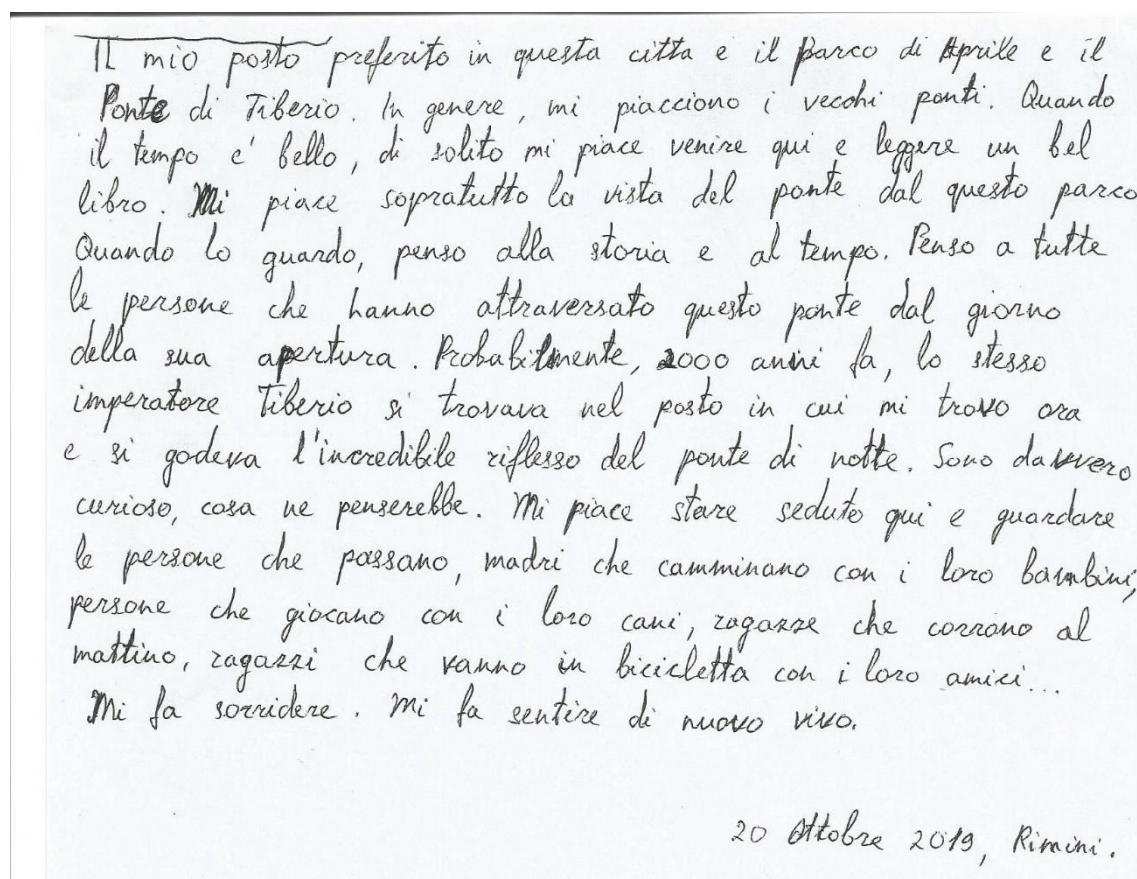 Il mio posto preferito in questa citta e il parco di Aprile e il
Ponte di Tiberio. In genere, mi piacciono i vecchi ponti. Quando
il tempo e' bello, di solito mi piace venire qui e leggere un bel
libro. Mi piace sopratutto la vista del ponte dal questo parco
Quando lo guardo, penso alla storia e al tempo. Penso a tutte
le persone che hanno attraversato questo ponte dal giorno
della sua apertura. Probabilmente, 2000 anni fa, lo stesso
imperatore Tiberio si trovava nel posto in cui mi trovo ora
e si godeva l'incredibile riflesso del ponte di notte. Sono davvero
curioso, cosa ne penserebbe. Mi piace stare seduto qui e guardare
le persone che passano, madri che camminano con i loro bambini,
persone che giocano con i loro cani, ragazze che corrono al
mattino, ragazzi che vanno in bicicletta con i loro amici...
Mi fa sorridere. Mi fa sentire di nuovo vivo.
20 Ottobre 2019, Rimini.